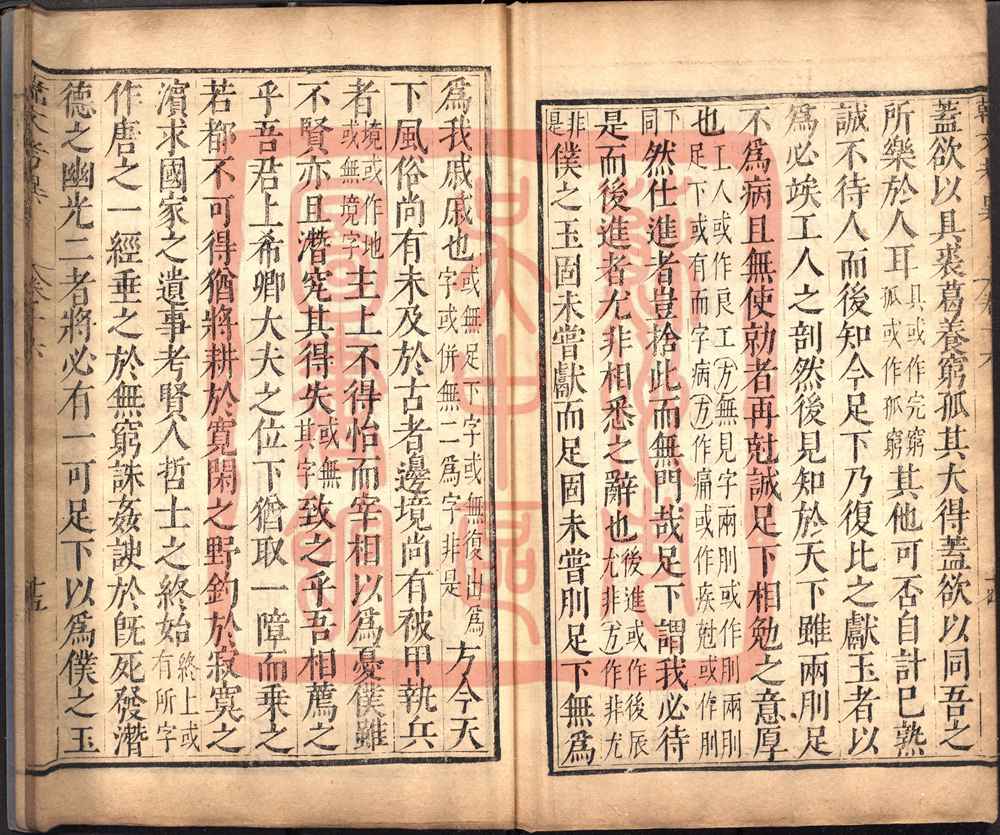 蓋欲以具裘葛養窮孤其大得蓋欲以同吾之
所樂於人耳具或作完窮孤或作孤窮其他可否自計已熟
誠不待人而後知今足下乃復比之獻玉者以
爲必竢工人之剖然後見知於天下雖兩刖足
不爲病且無使勍者再尅誠足下相勉之意厚
也工人或作良工方無見字兩刖或作刖兩刖足下或有而字病方作痛或作疾尅或作刖
然仕進者豈捨此而無門哉足下謂我必待
是而後進者尤非相悉之辭也後進或作後辰尤非方作非尤
僕之玉固未嘗獻而足固未嘗刖足下無爲
爲我戚戚也或無足下字或無復出爲字或併無二爲字非是方今天
下風俗尚有未及於古者邊境尚有被甲執兵
者境或作地或無境字主上不得怡而宰相以爲憂僕雖
不賢亦且潛究其得失或無其字致之乎吾相薦之
乎吾君上希卿大夫之位下猶取一障而乗之
若都不可得猶將耕於寬閑之野釣於寂寞之
濵求國家之遺事考賢人哲士之終始終上或有所字
作唐之一經垂之於無窮誅姦諛於旣死發潛
德之幽光二者將必有一可足下以爲僕之玉